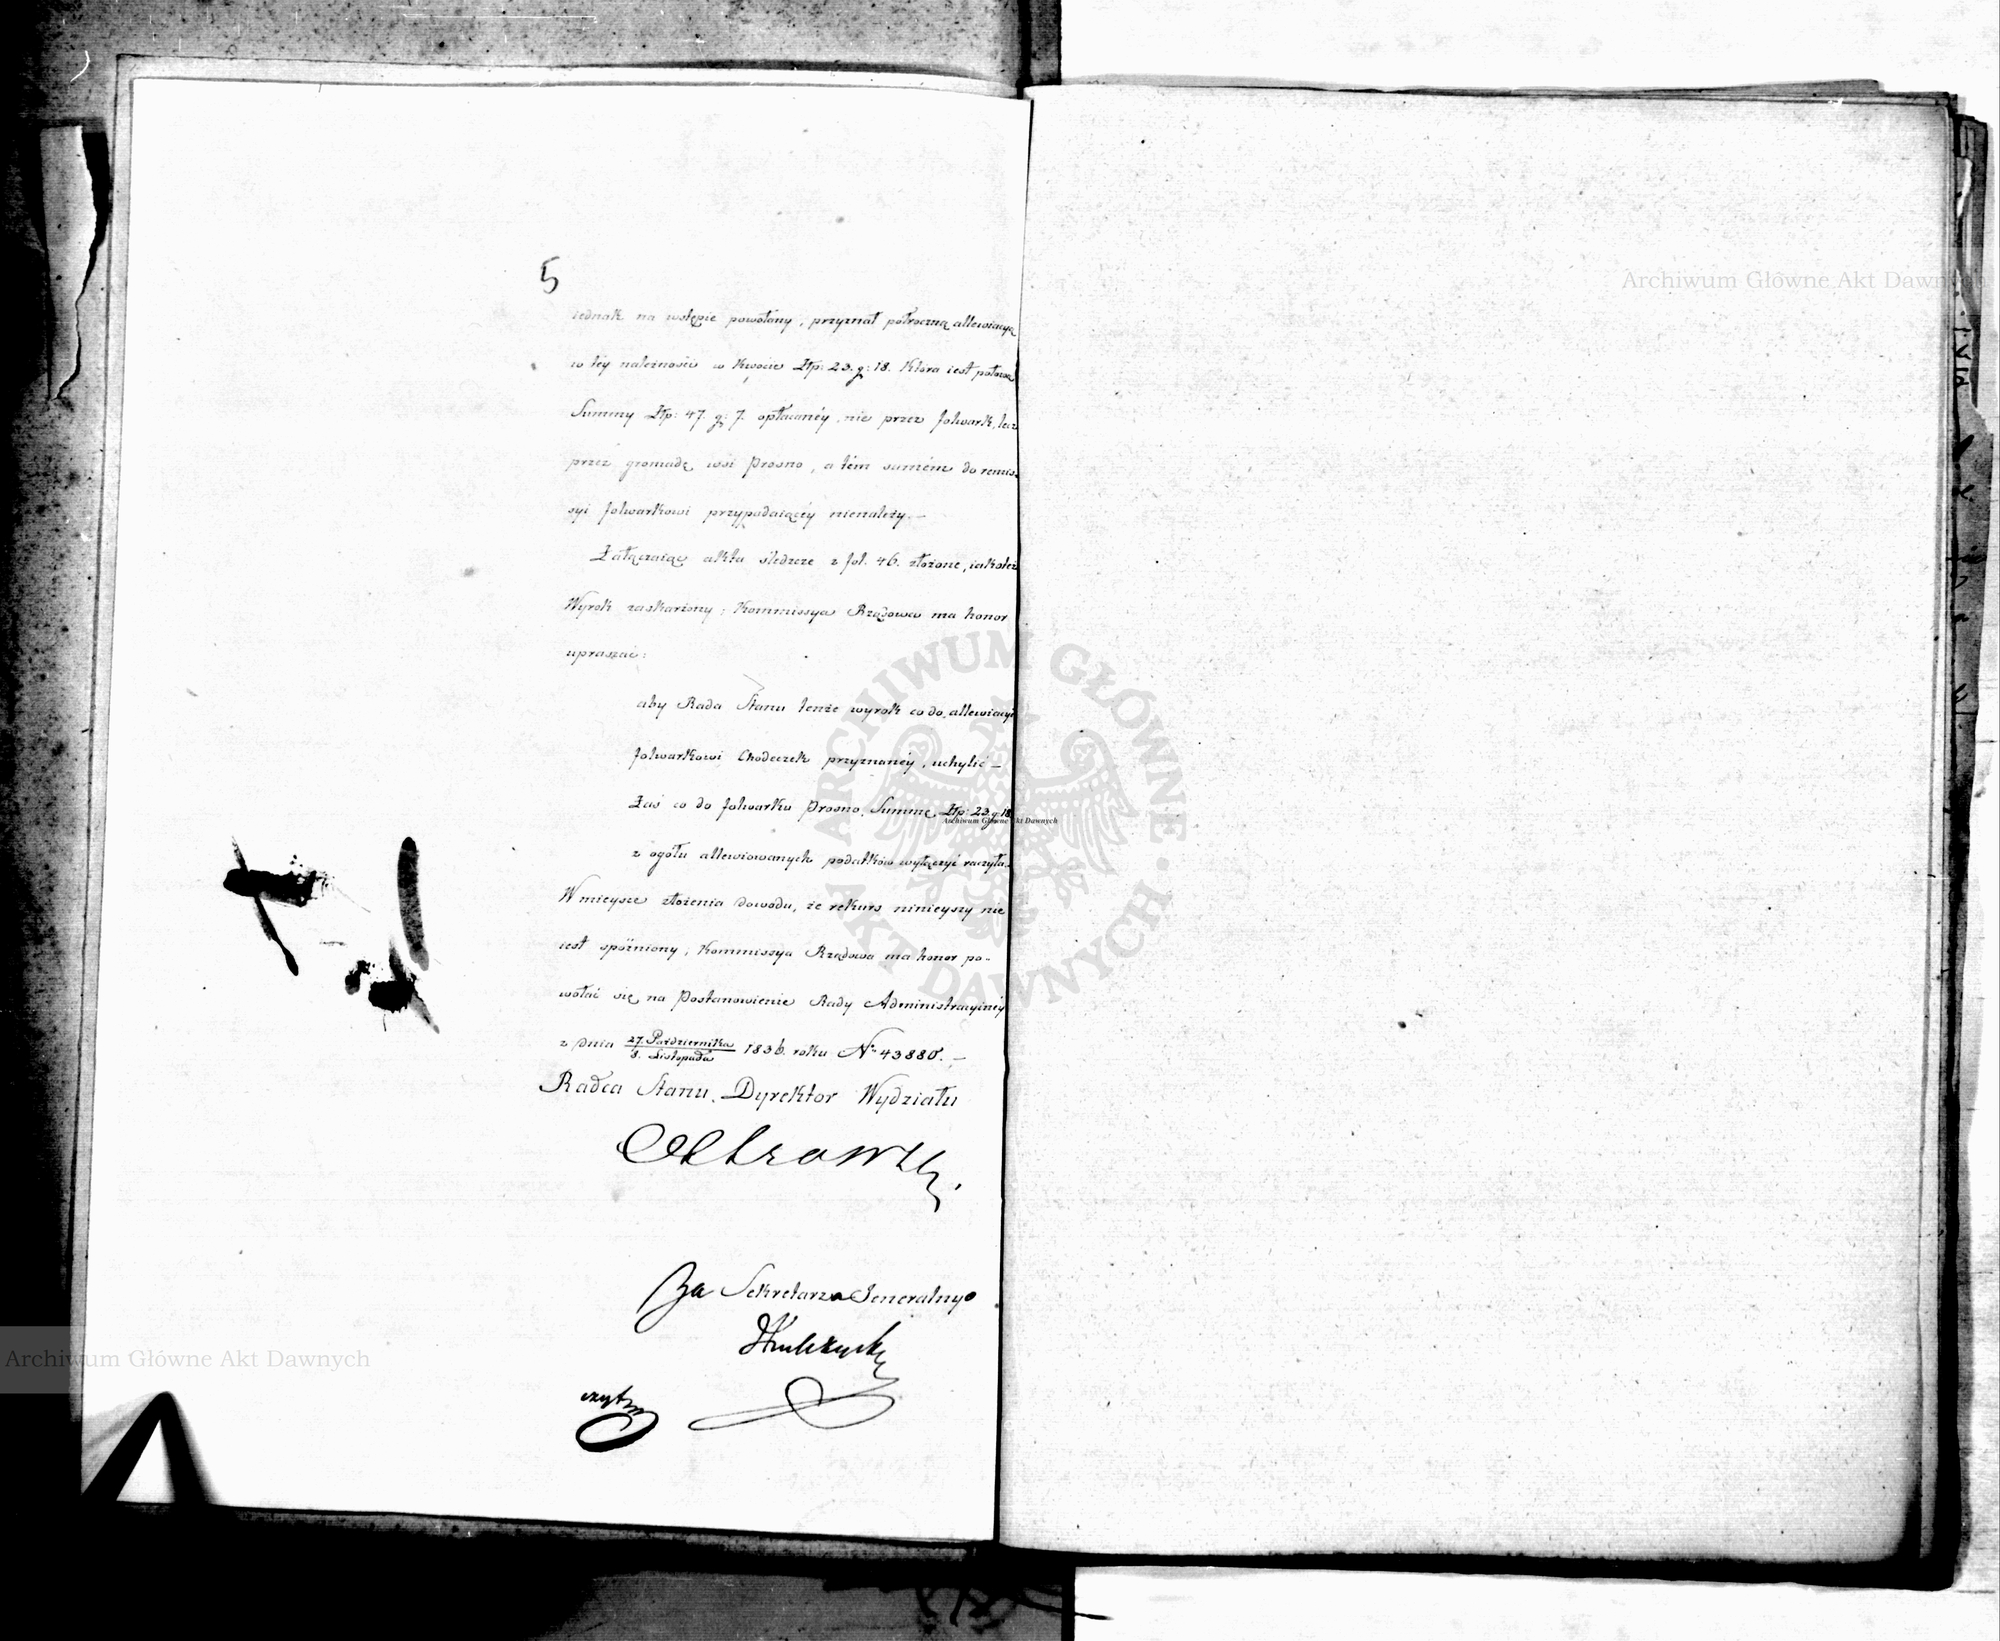 5
iednak na wstępie powołany, przyznał półroczną allewiacyą
w téy należności w kwocie Złp: 23. g: 18. która iest połową
Summy Złp: 47. g: 7. opłacanéy, nie przez folwark, lecz
przez gromadę wsi Prosno, a tém samém do remis-
syi folwarkowi przypadaiącéy nienależy. —
Załączaiąc akta śledcze z fol. 46. złożone, iakoteż
Wyrok zaskarżony; Kommissya Rządowa ma honor
upraszać:
aby Rada Stanu tenże wyrok co do allewiacyi
folwarkowi Chodeczek przyznanéy, uchylić —
Zaś co do folwarku Prosno, Summę Złp: 23. g: 18.
z ogółu allewiowanych podatków wyłączyć raczyła.
W mieysce złożenia dowodu, że rekurs ninieyszy nie
iest spóźniony, Kommissya Rządowa ma honor po-
wołać się na Postanowienie Rady Administracyinéy
z dnia 27. Października/8. Listopada 1836. roku Nr 43880. —
Radca Stanu, Dyrektor Wydziału
Za Sekretarza Jeneralnego
ARCHIWUM GŁÓWNE AKT DAWNYCH
Archiwum Główne Akt Dawnych
Archiwum Główne Akt Dawnych
Archiwum Główne Akt Dawnych